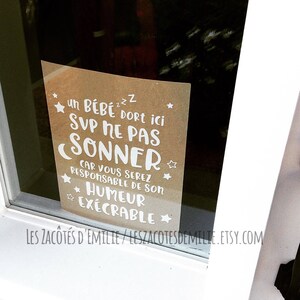 un BÉBÉ zzZ
DORT ICI
SVP NE PAS
SONNER
CAR VOUS SEREZ
RESPONSABLE DE SON
HUMEUR
EXÉCRABLE
Les Zacôtés d'Emilie / leszacotesdemilie.etsy.com